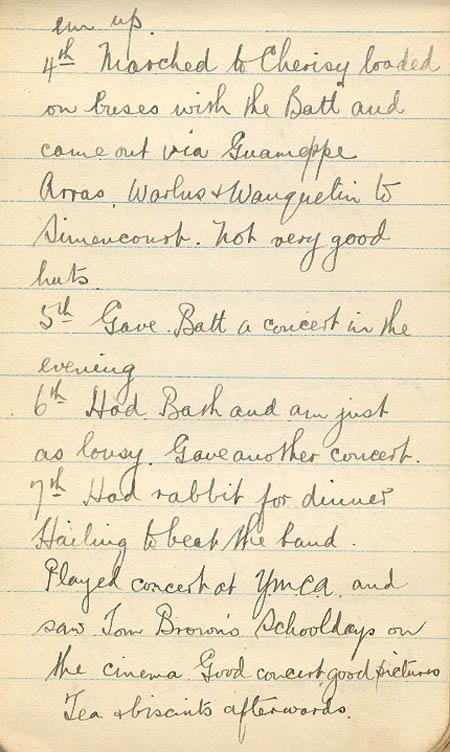 em up.
4th Marched to Cherisy loaded
on buses with the Batt and
came out via Guameppe
Arras, Warlus & Wanquetin to
Simencourt. Not very good
huts.
5th Gave Batt a concert in the
evening
6th Had Bath and am just
as lousy. Gave another concert.
7th Had rabbit for dinner
Hailing to beat the band.
Played concert at YMCA. and
saw Tom Brown's Schooldays on
the cinema. Good concert, good pictures
Tea & biscuits afterwards.